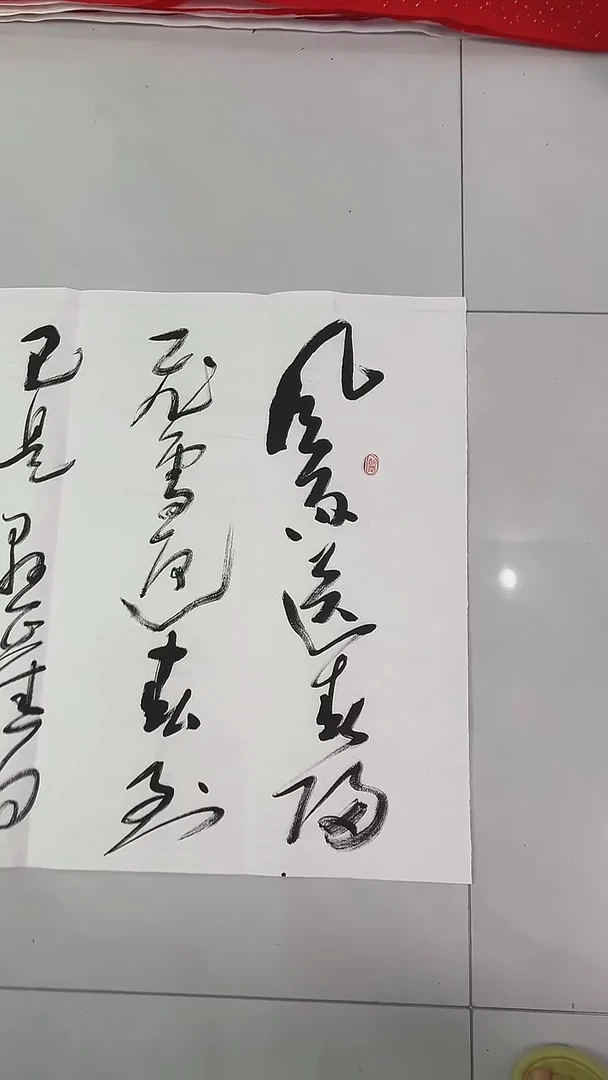 风雨送春归
飞雪迎春到
已是悬崖百